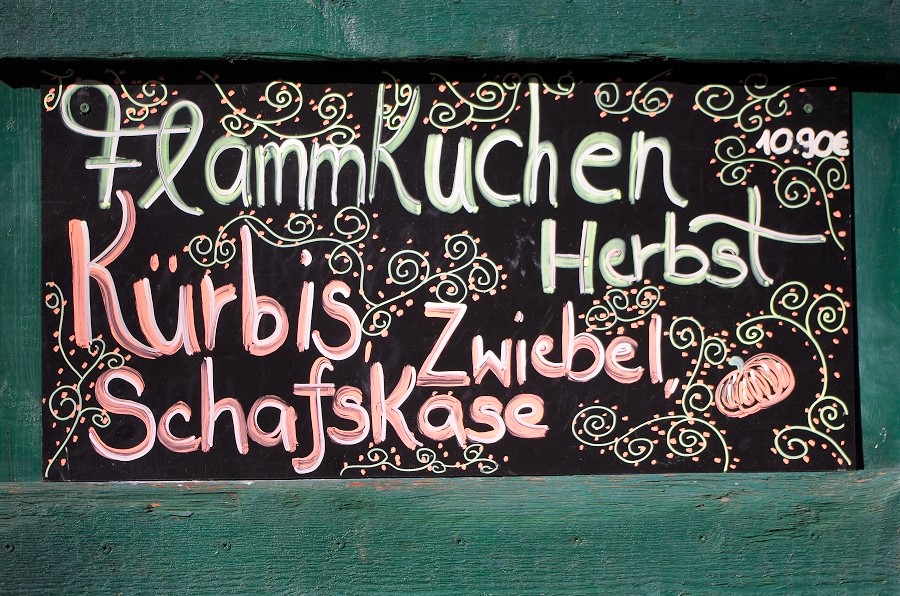 Flammkuchen
10.90€
Herbst
Kürbis, Zwiebel,
Schafskase